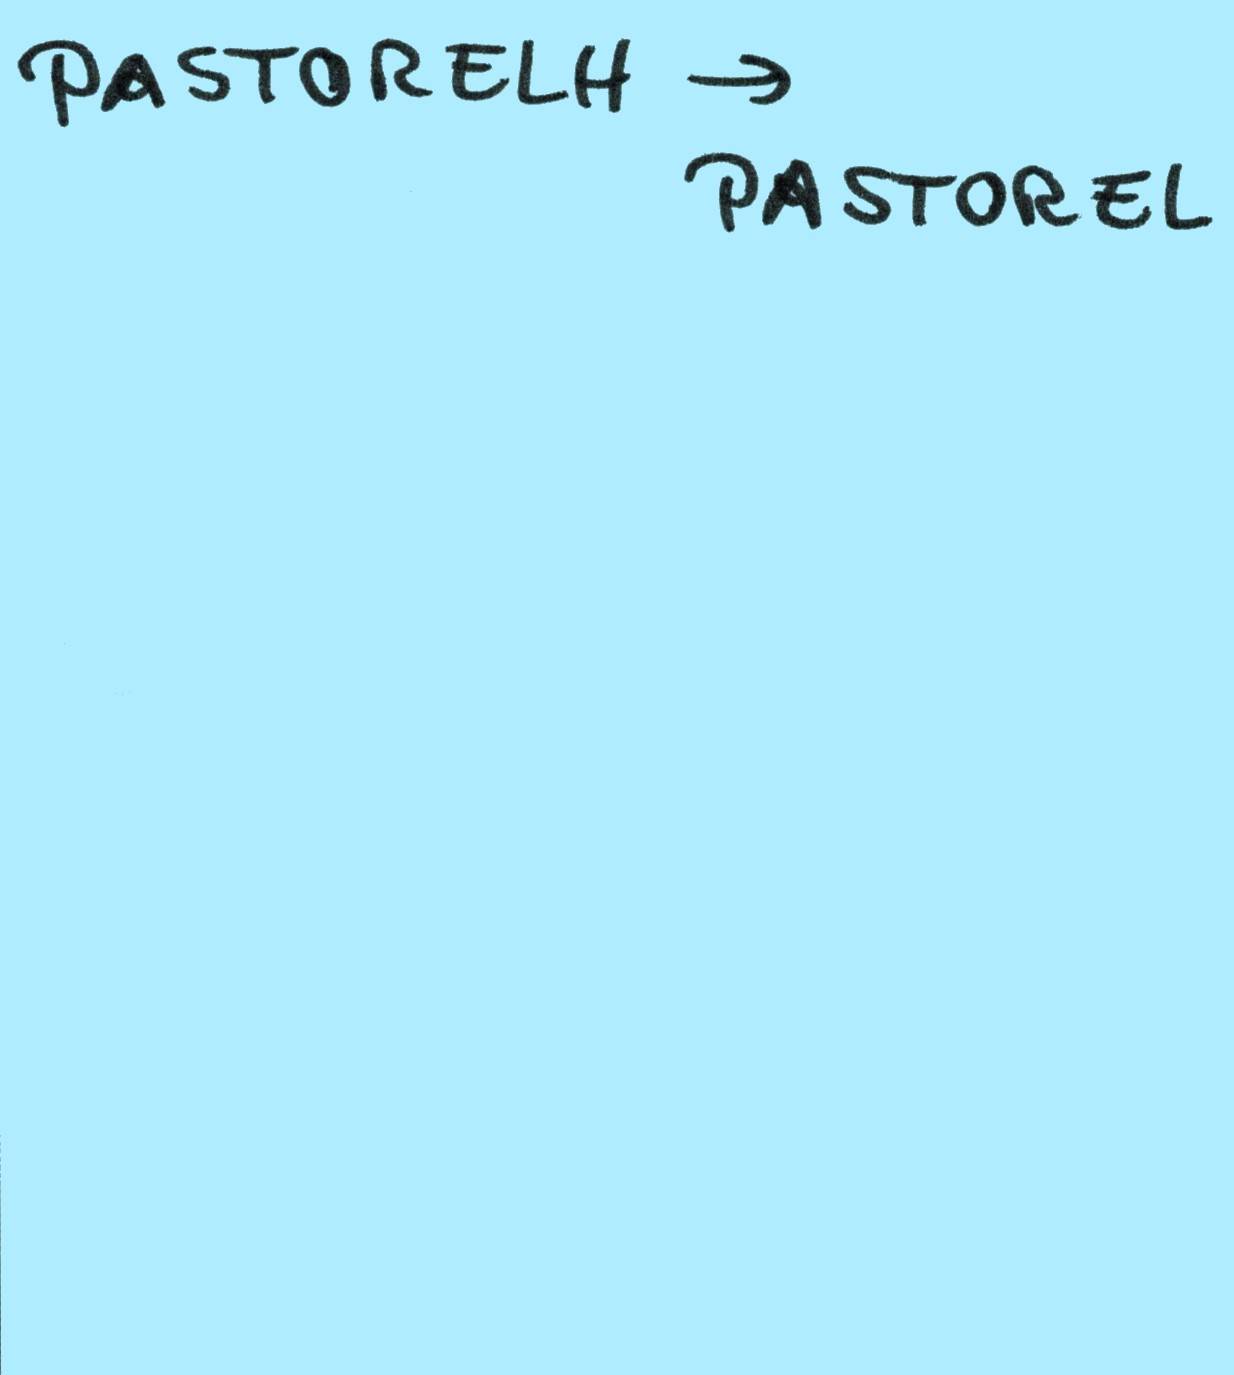 PASTORELH →
PASTOREL